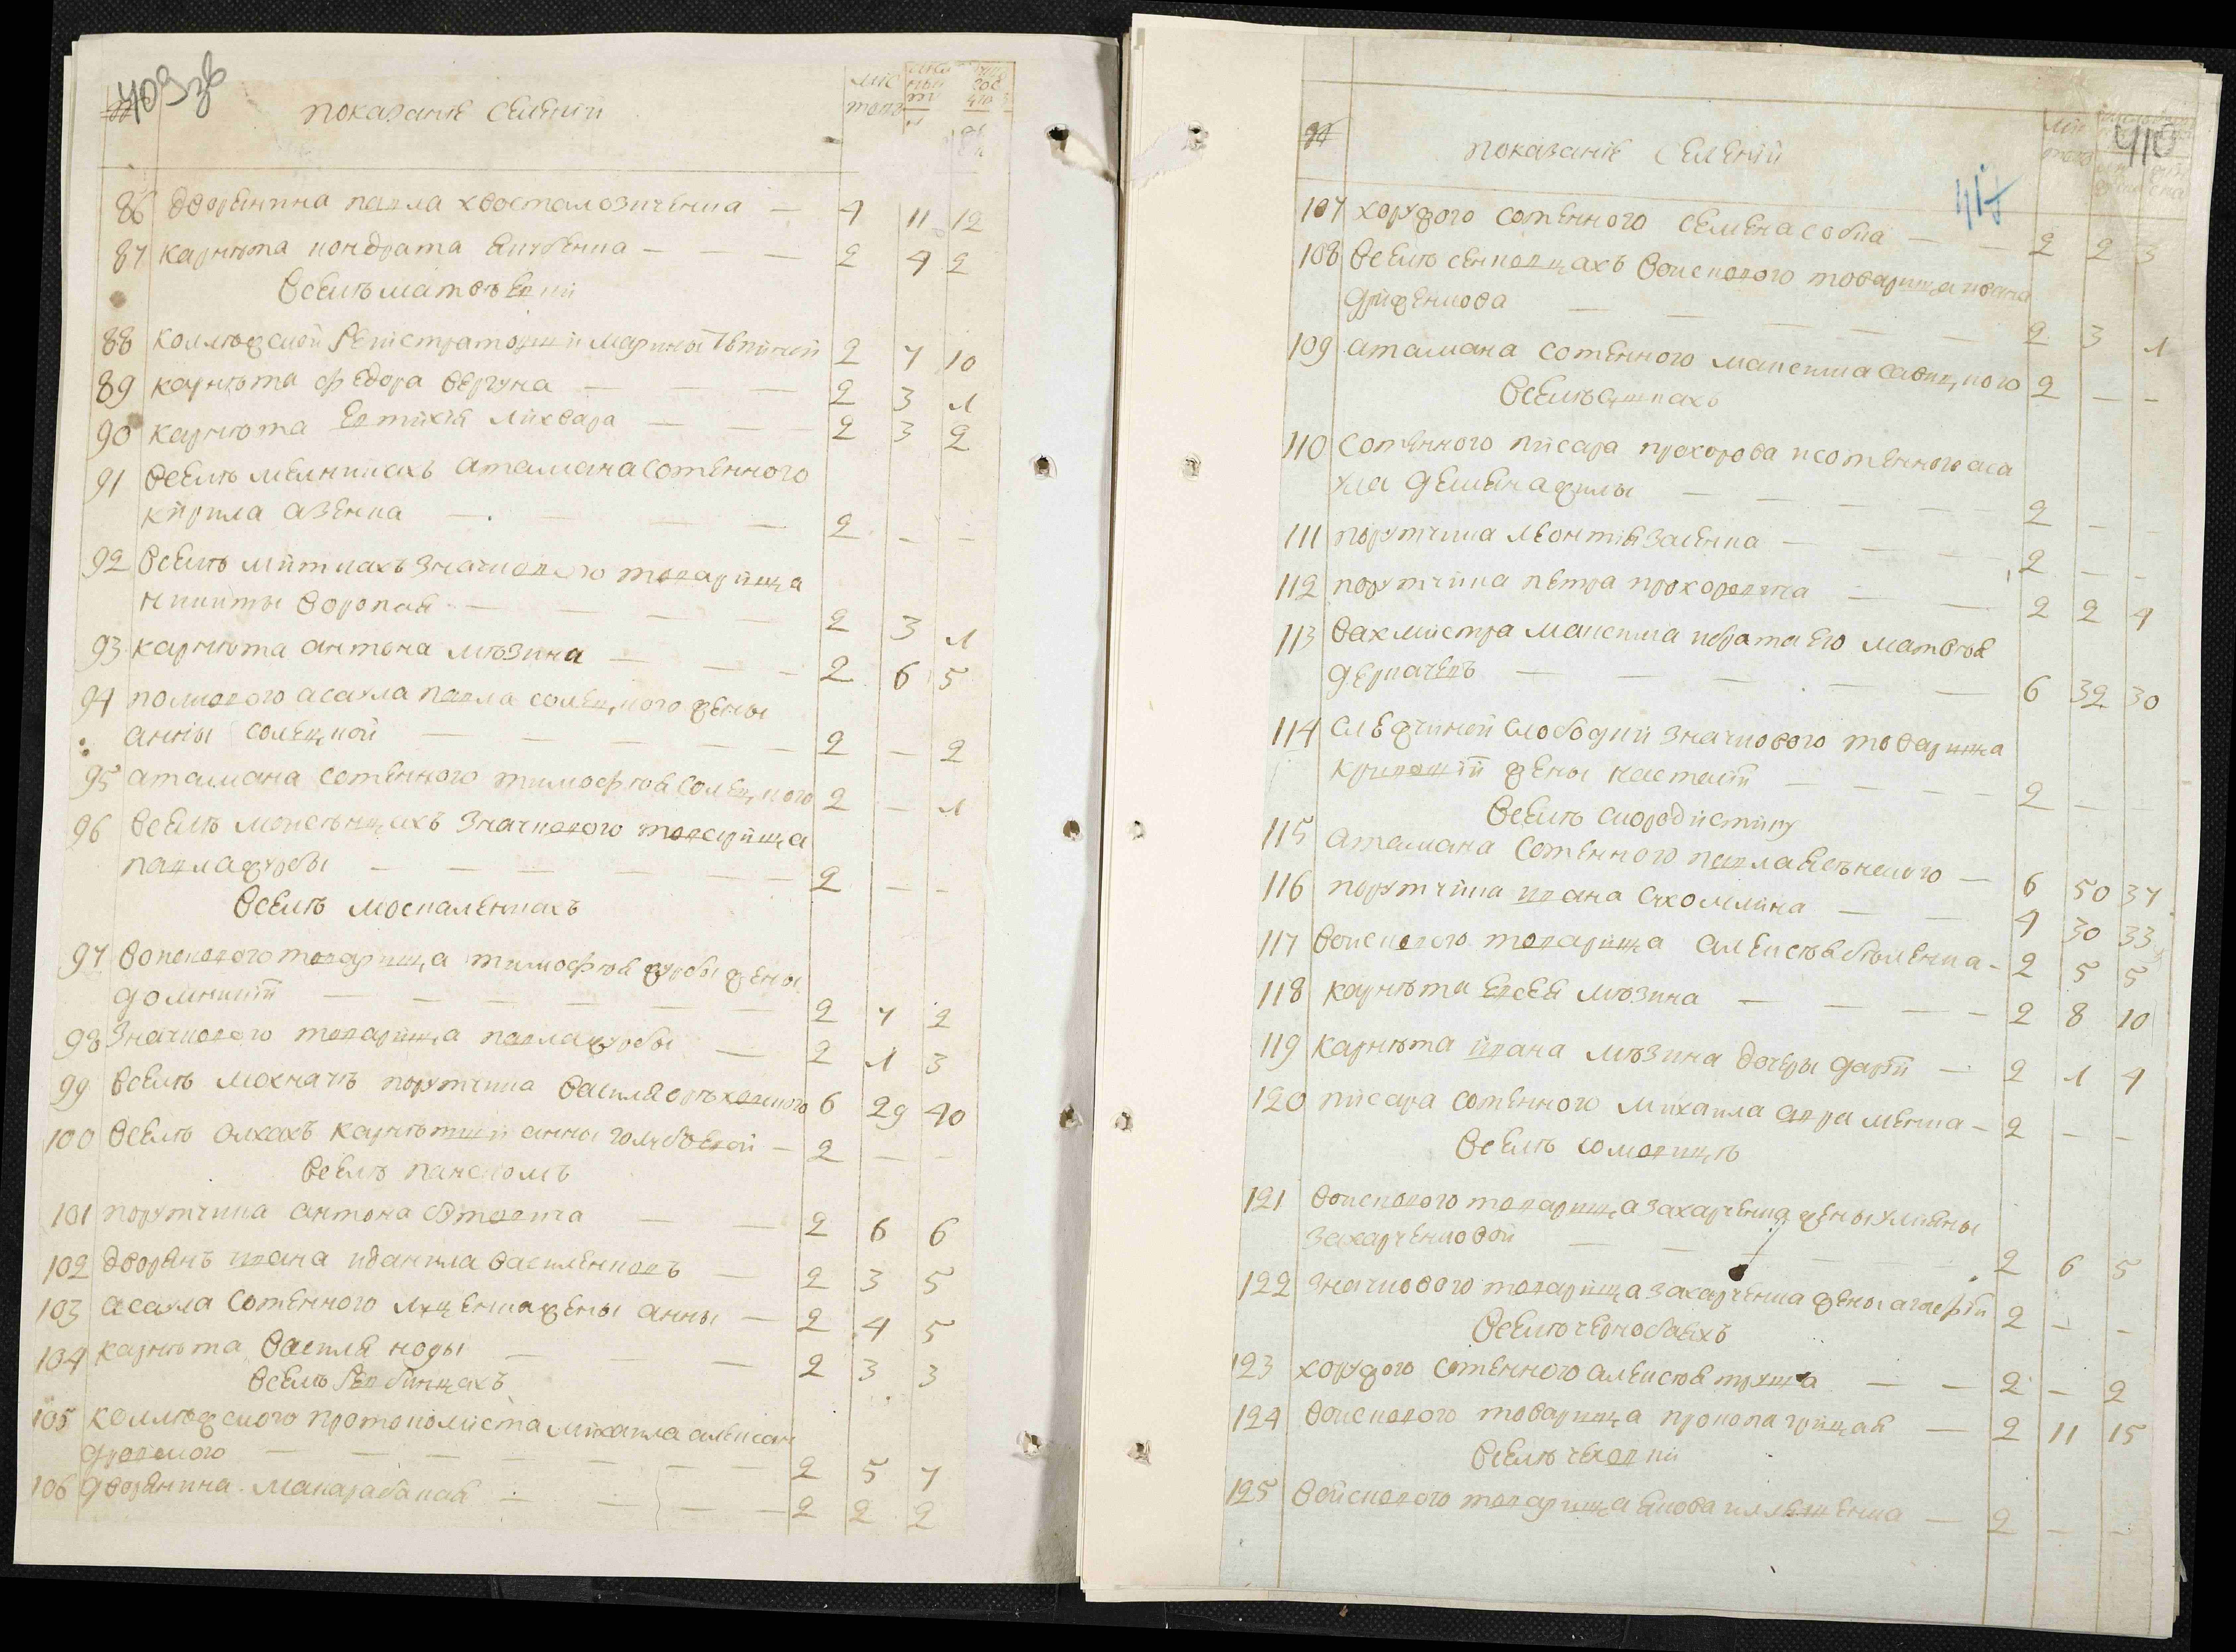 409зв
№ показание селений
мес
тово
86 дворянина павла хвосталозиченка — 4 11 12
87 карнета кондрата якубенка — — — 2 4 2
Вселе матвѣевки
88 коллежской регистраторши марины 2 7 10
89 карнета федора вергуна — — — 2 3 1
90 карнета евтихия лихвара — — — 2 3 2
91 Вселе мелниках атамана сотенного
кирила азенка — — — — 2 — —
92 Вселе митлах значкового товарища
никиты воропая — — — — 2 3 1
93 карнета антона мѣзина — — — 2 6 5
94 полкового асаула павла солецкого жены
анны солецкой — — — — — 2 — 2
95 атамана сотенного тимофея солецкого 2 — 1
96 Вселе монсѣнцахъ значкового товарища
павла журбы — — — — — — 2 — —
Вселе москаленкахъ
97 Войскового товарища тимофея журбы жены
домникии — — — — — — 2 7 2
98 Значкового товарища павла журбы — 2 1 3
99 Вселе мохначе порутчика василя орѣховского 6 29 40
100 Вселе олхахъ карнетши анны голубовской — 2 — —
Вселе панскомъ
101 порутчика антона — — 2 6 6
102 дворянъ ивана и данила василенковъ — 2 3 5
103 асаула сотенного луценка жены анны — 2 4 5
104 карнета василя коды — — — 2 3 3
Вселе ревбинцахъ
105 коллежского протоколиста михаила алексан
дровского — — — — — — — 2 5 7
106 дворянина макара бакая — — — — 2 2 2
410
417
№ показание селений
107 хоружого сотенного семена собка — — 2 2 3
108 Вселе сенковцахъ Войскового товарища ивана
друженкова — — — — — 2 3 1
109 атамана сотенного максима савицкого 2 — —
Вселе
110 сотенного писара прохорова и сотенного аса
ула — — — — 2 — —
111 порутчика леонтия заенка — — — — 2 — —
112 порутчика петра прохоровича — — 2 2 4
113 Вахмистра максима и брата его матвѣя
деркачевъ — — — — — 6 32 30
114 слободки значкового товарища
жены настасии — — — — 2 —
Вселе смородистику
115 атамана сотенного павла ясѣнского — 6 50 37
116 порутчика ивана сухомлина — — 4 30 33
117 Войскового товарища алексѣя бѣленка — 2 5 5
118 карнета евсея мѣзина — — — — 2 8 10
119 карнета ивана мѣзина дочеры дарии — 2 1 4
120 писара сотенного михаила авраменка — 2 — —
Вселе
121 Войскового товарища захарченка жены уляны
захарченковой — — — — 2 6 5
122 значкового товарища захарченка жены агафии 2 — —
Вселе чернобаяхъ
123 хоружого сотенного алексѣя трушка — — 2 — 2
124 Войскового товарища прокопа грицая — 2 11 15
Вселе чеховки
125 Войскового товарища якова илляшенка — 2 — —